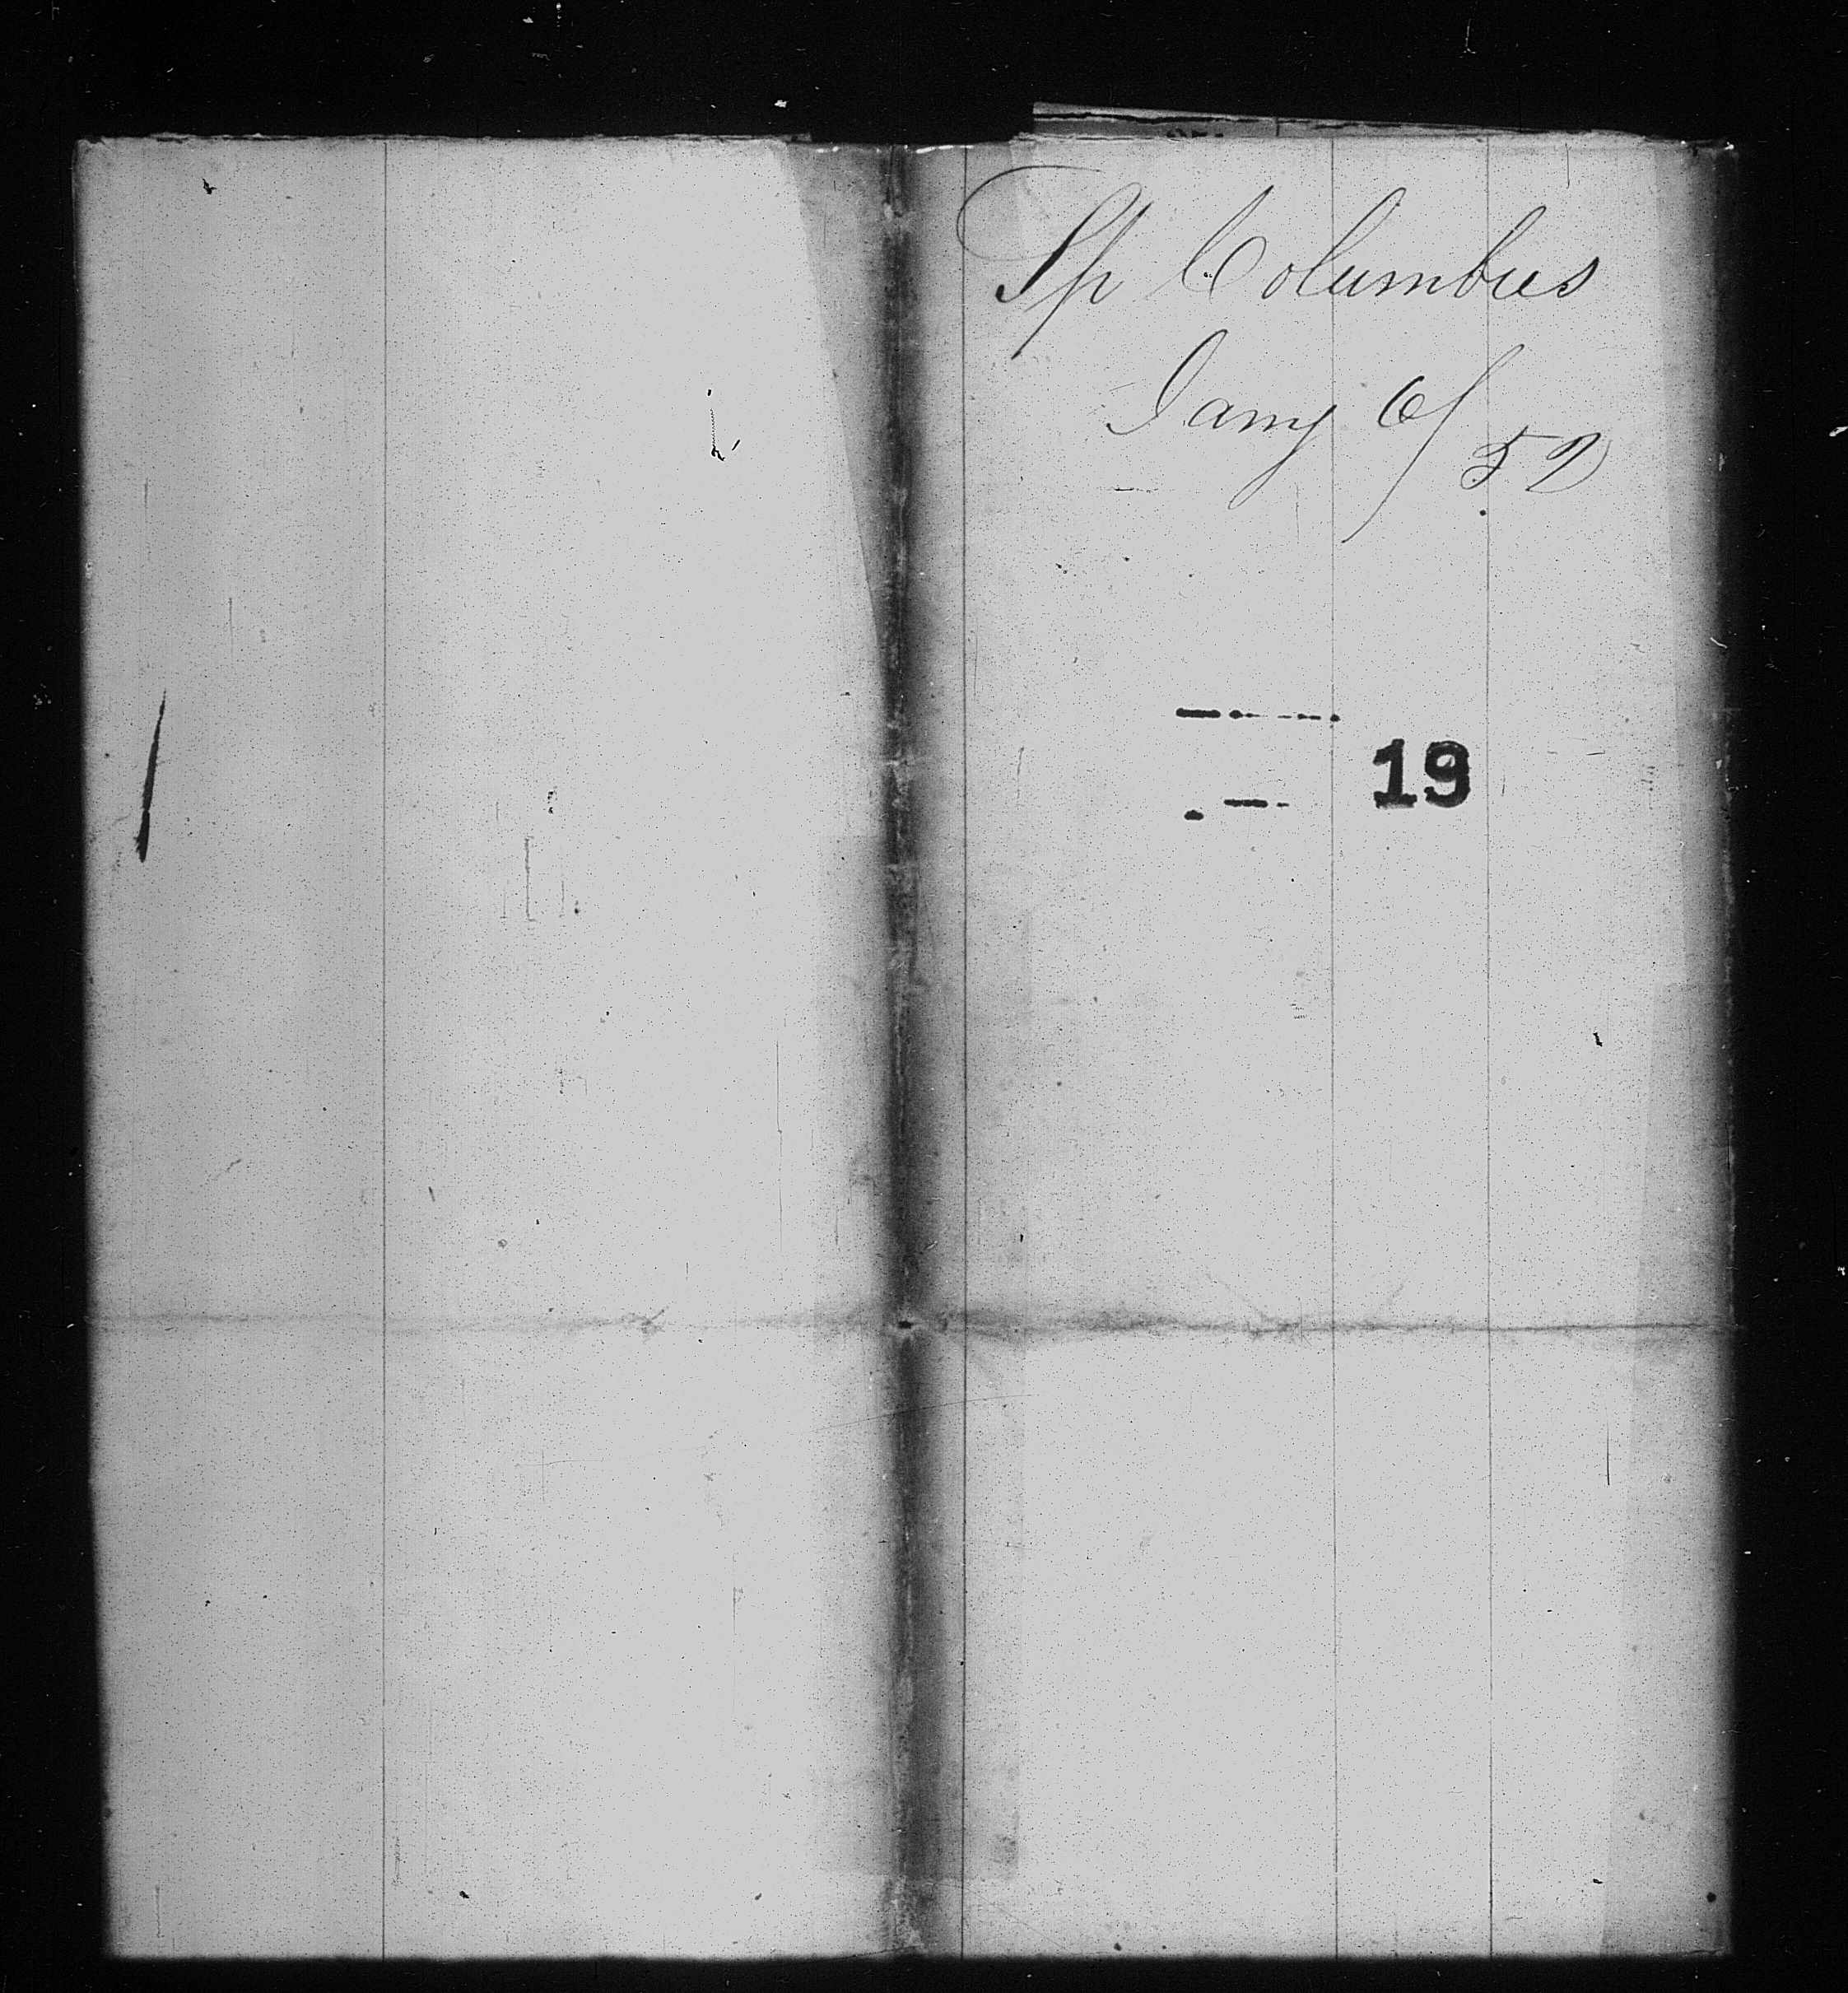 Sp Columbus
Jany 6/52
19